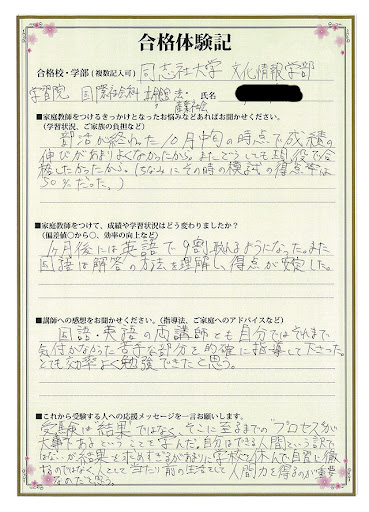 合格体験記
合格校・学部(複数記入可) 同志社大学 文化情報学部
学習院 国際社会科 法・ 氏名
産業社会
■家庭教師をつけるきっかけとなったお悩みなどあればお聞かせください。
(学習状況、ご家族の負担など)
部活が終わった10月中旬の時点で成績の
伸びがあまりよくなかったから。またどうしても現役で合
格したかったから。(ちなみにその時の模試の得点率は
50%だった。)
■家庭教師をつけて、成績や学習状況はどう変わりましたか?
(偏差値○から○、効率の向上など)
1ヶ月後には英語で9割取れるようになった。また
国語は解答の方法を理解し、得点が安定した。
■講師への感想をお聞かせください。(指導法、ご家庭へのアドバイスなど)
国語・英語の両講師とも自分ではそれまで
気付かなかった苦手な部分を的確に指導して下さった。
とても効率よく勉強できたと思う。
■これから受験する人への応援メッセージを一言お願いします。
受験は"結果"ではなく、そこに至るまでの"プロセス"が
大事であるということを学んだ。自分はできる人間という訳で
はないが結果を求めすぎるがあまりに学校を休んで自習し徹
するのではなく人として当たり前の生活をして人間力を得るのが重要
なのだと思う。